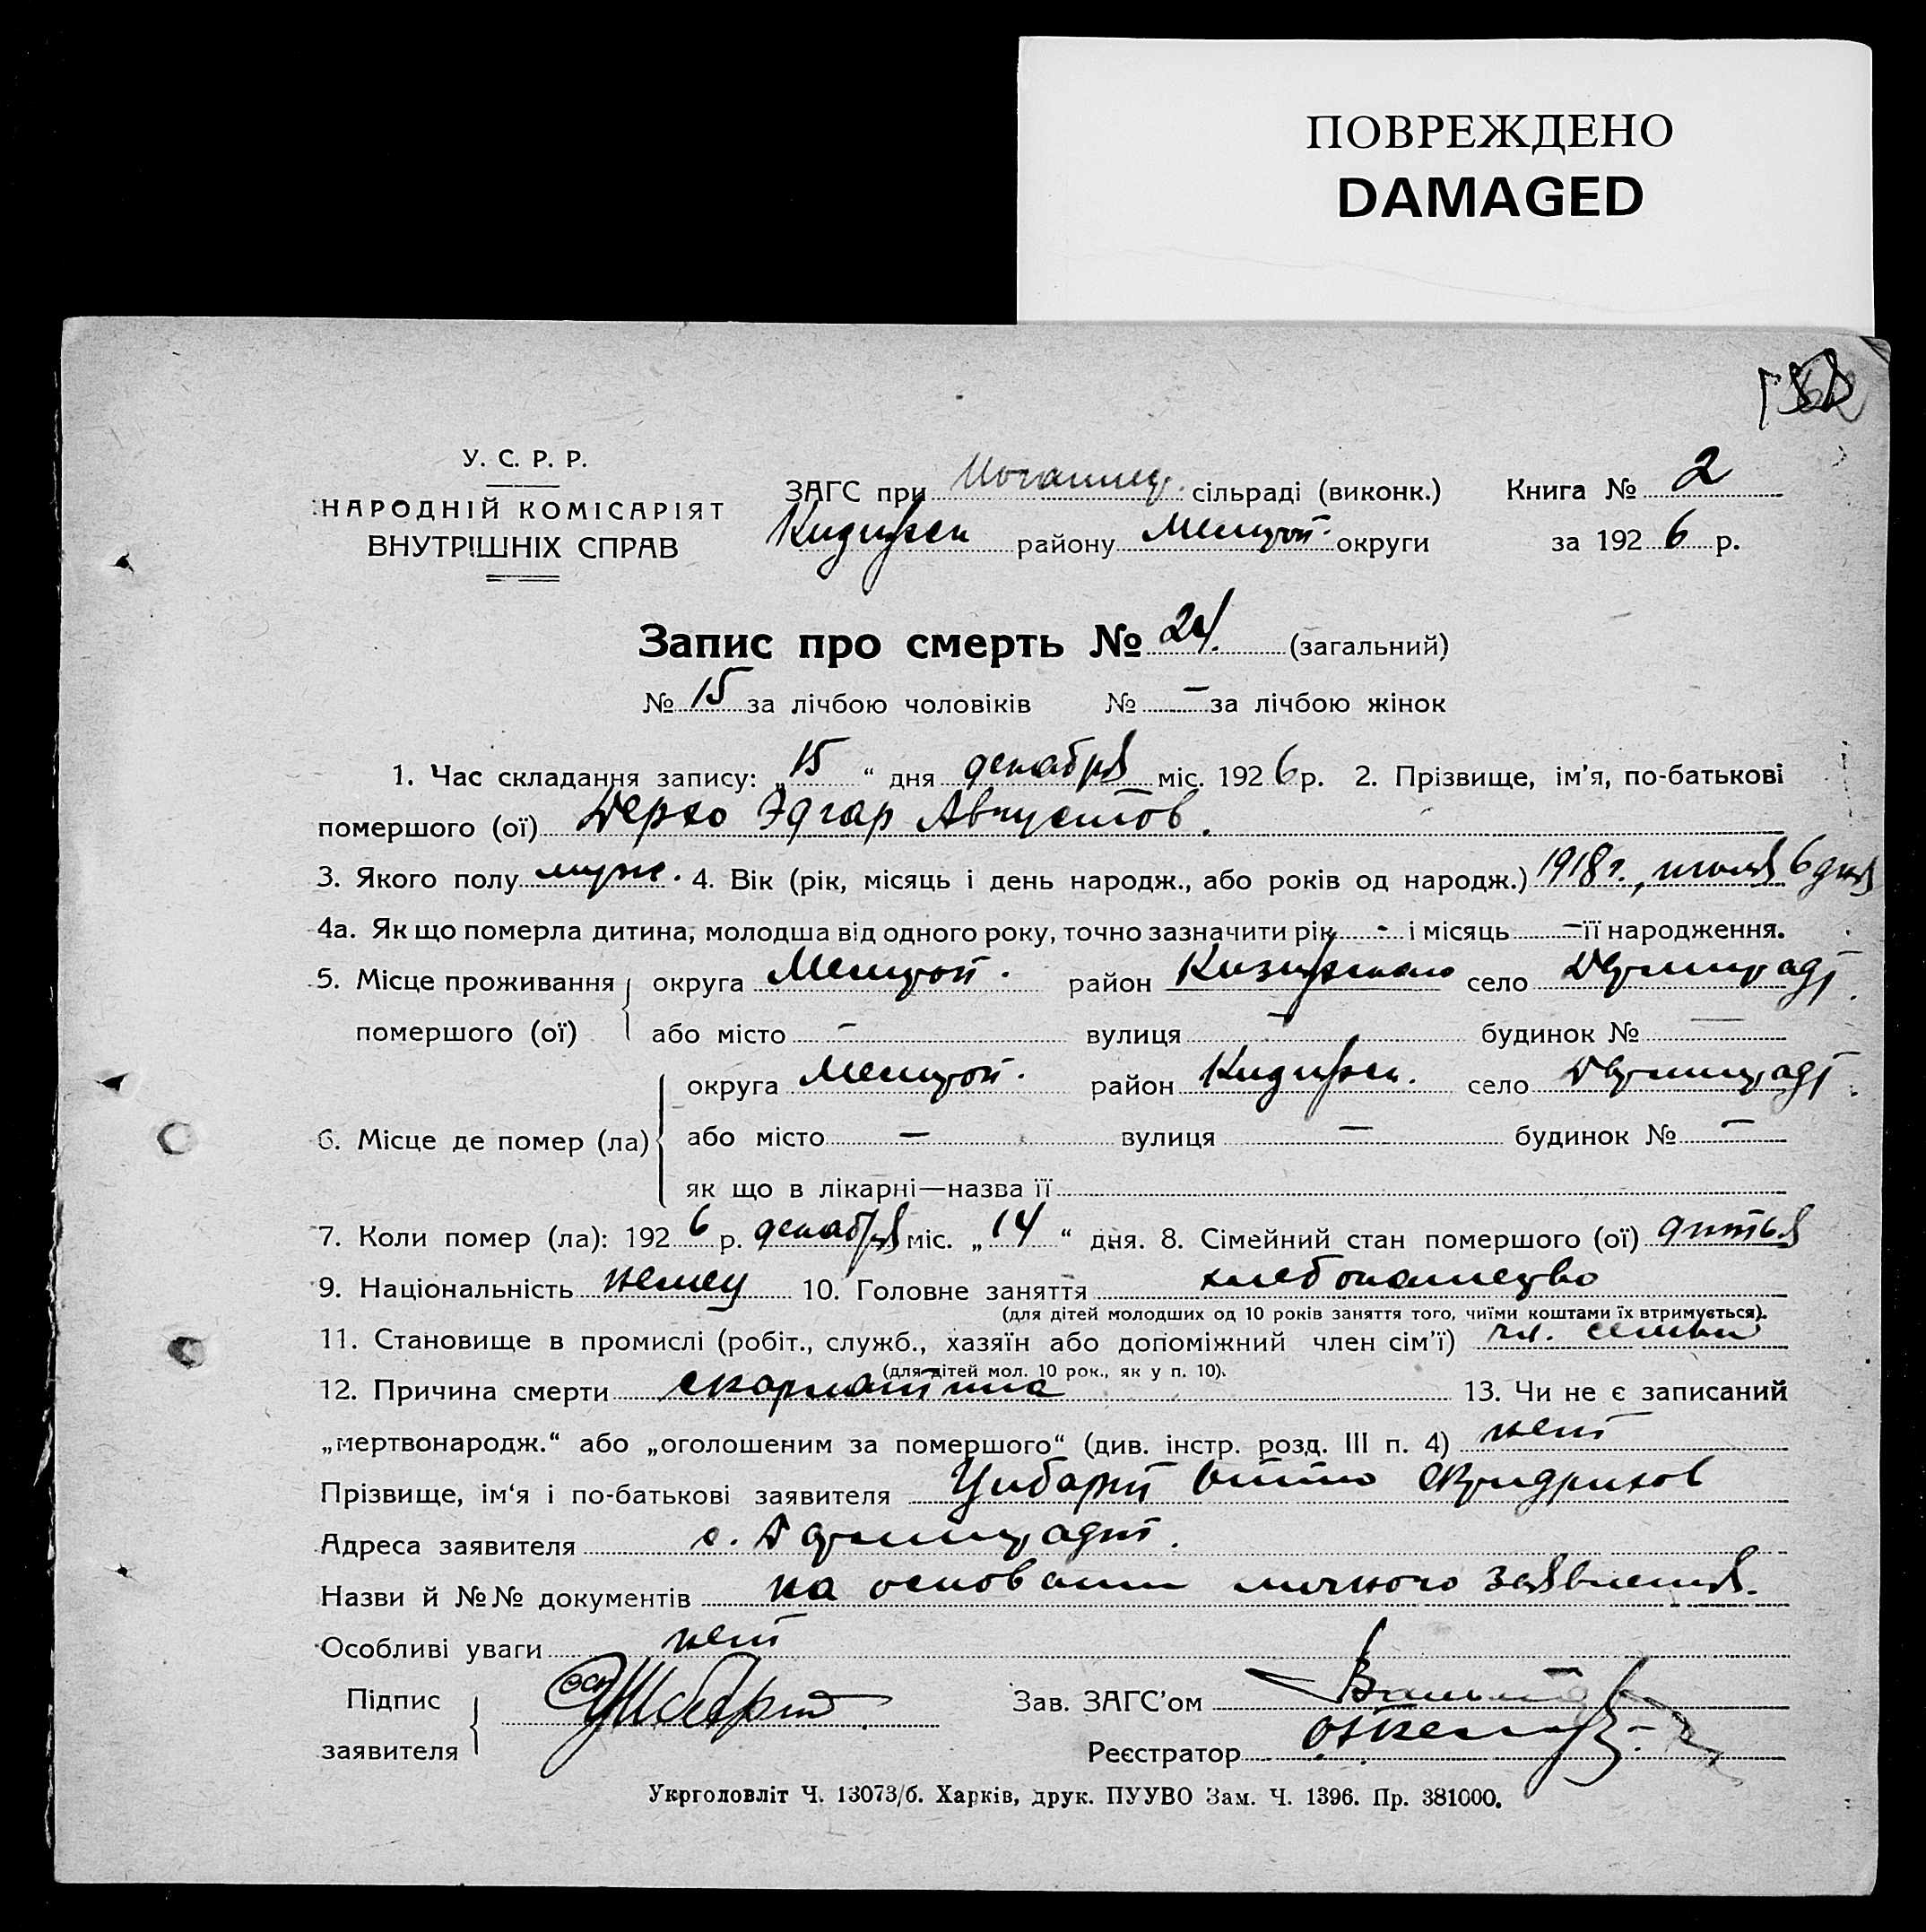 ПОВРЕЖДЕНО
DAMAGED
У. С. Р. Р.
НАРОДНІЙ КОМІСАРІЯТ
ВНУТРІШНІХ СПРАВ
ЗАГС при сільраді (виконк.) Книга № 2
району Мелитоп. округи за 1926 р.
Запис про смерть № 24. (загальний)
№ 15 за лічбою чоловіків № — за лічбою жінок
1. Час складання запису: „15“ дня декабря міс. 1926 р. 2. Прізвище, ім'я, по-батькові
помершого (ої) Дерко Эдгар Августов.
3. Якого полу муж. 4. Вік (рік, місяць і день народж., або років од народж.) 1918 г., 6 дня
4а. Як що померла дитина, молодша від одного року, точно зазначити рік - і місяць — її народження.
5. Місце проживання округа Мелитоп. район село
помершого (ої) або місто — вулиця — будинок № —
округа Мелитоп. район село
6. Місце де помер (ла) або місто — вулиця — будинок № —
як що в лікарні—назва її
7. Коли помер (ла): 1926 р. декабря міс. „14“ дня. 8. Сімейний стан помершого (ої) дитья
9. Національність немец 10. Головне заняття хлебопашество
(для дітей молодших од 10 років заняття того, чиїми коштами їх втримується).
11. Становище в промислі (робіт., служб., хазяїн або допоміжний член сім'ї) чл. семьи
(для дітей мол. 10 рок., як у п. 10).
12. Причина смерти скарлатина 13. Чи не є записаний
„мертвонародж.“ або „оголошеним за помершого“ (див. інстр. розд. III п. 4) нет
Прізвище, ім'я і по-батькові заявителя Цибарт Отто
Адреса заявителя с.
Назви й №№ документів на основании личного заявления.
Особливі уваги нет
Підпис Зав. ЗАГС'ом
заявителя Реєстратор
Укрголовліт Ч. 13073/б. Харків, друк. ПУУВО Зам. Ч. 1396. Пр. 381000.